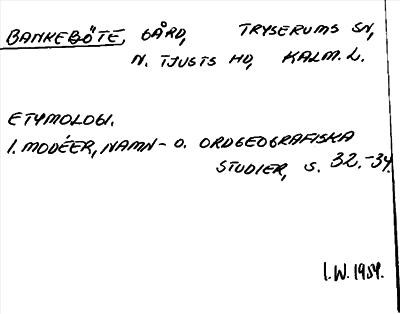 BANKEBÖTE, GÅRD, TRYSERUMS SN,
N. TJUSTS HD, KALM. L.
ETYMOLOGI.
I. MODÉER, NAMN- O. ORDGEOGRAFISKA
STUDIER, S. 32.-34.
I.W. 1984.